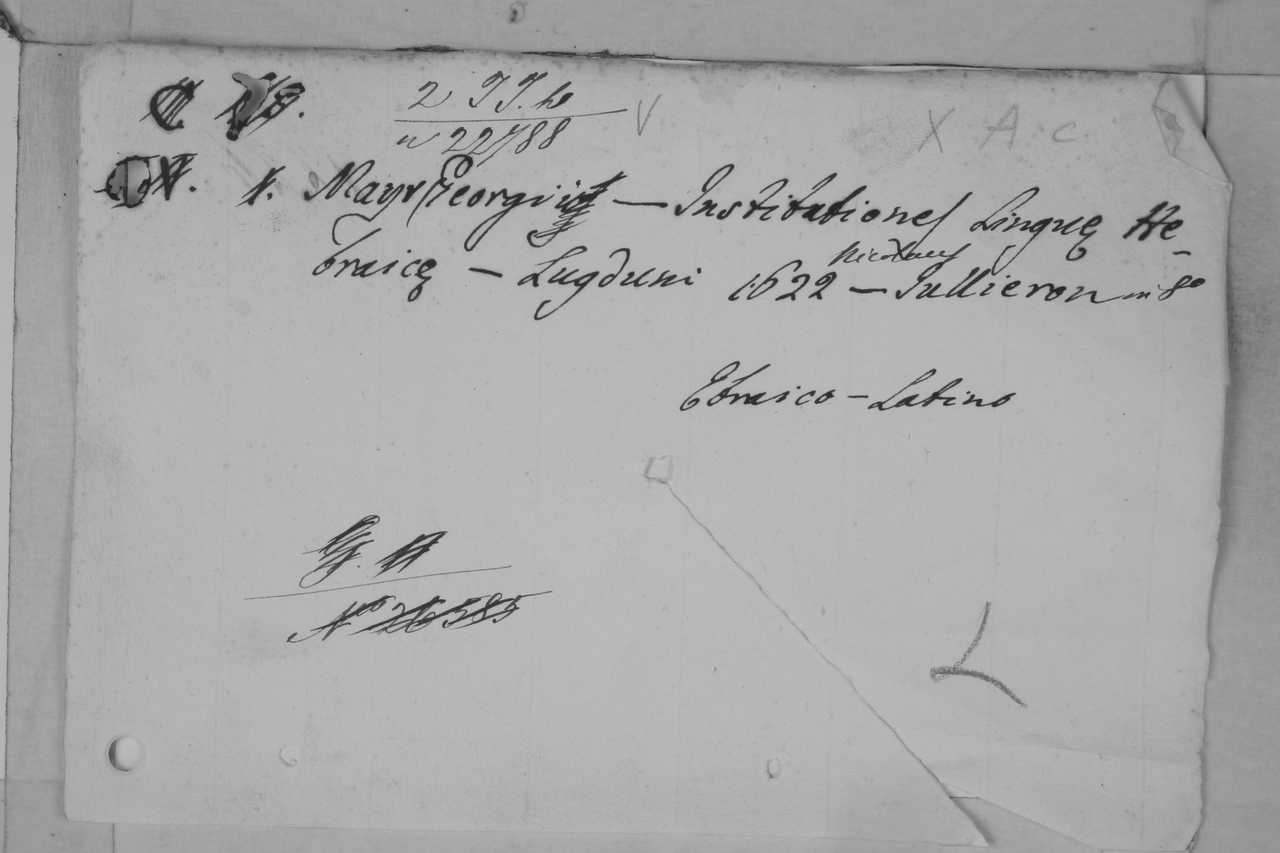 2 TT. h
n 22788 V
X A c
Mayr Georgii — Institutiones Linguę He-
braicę — Lugduni 1622 — Nicolaus Jullieron in 8º
Ebraico - Latino
Nº 26385
L